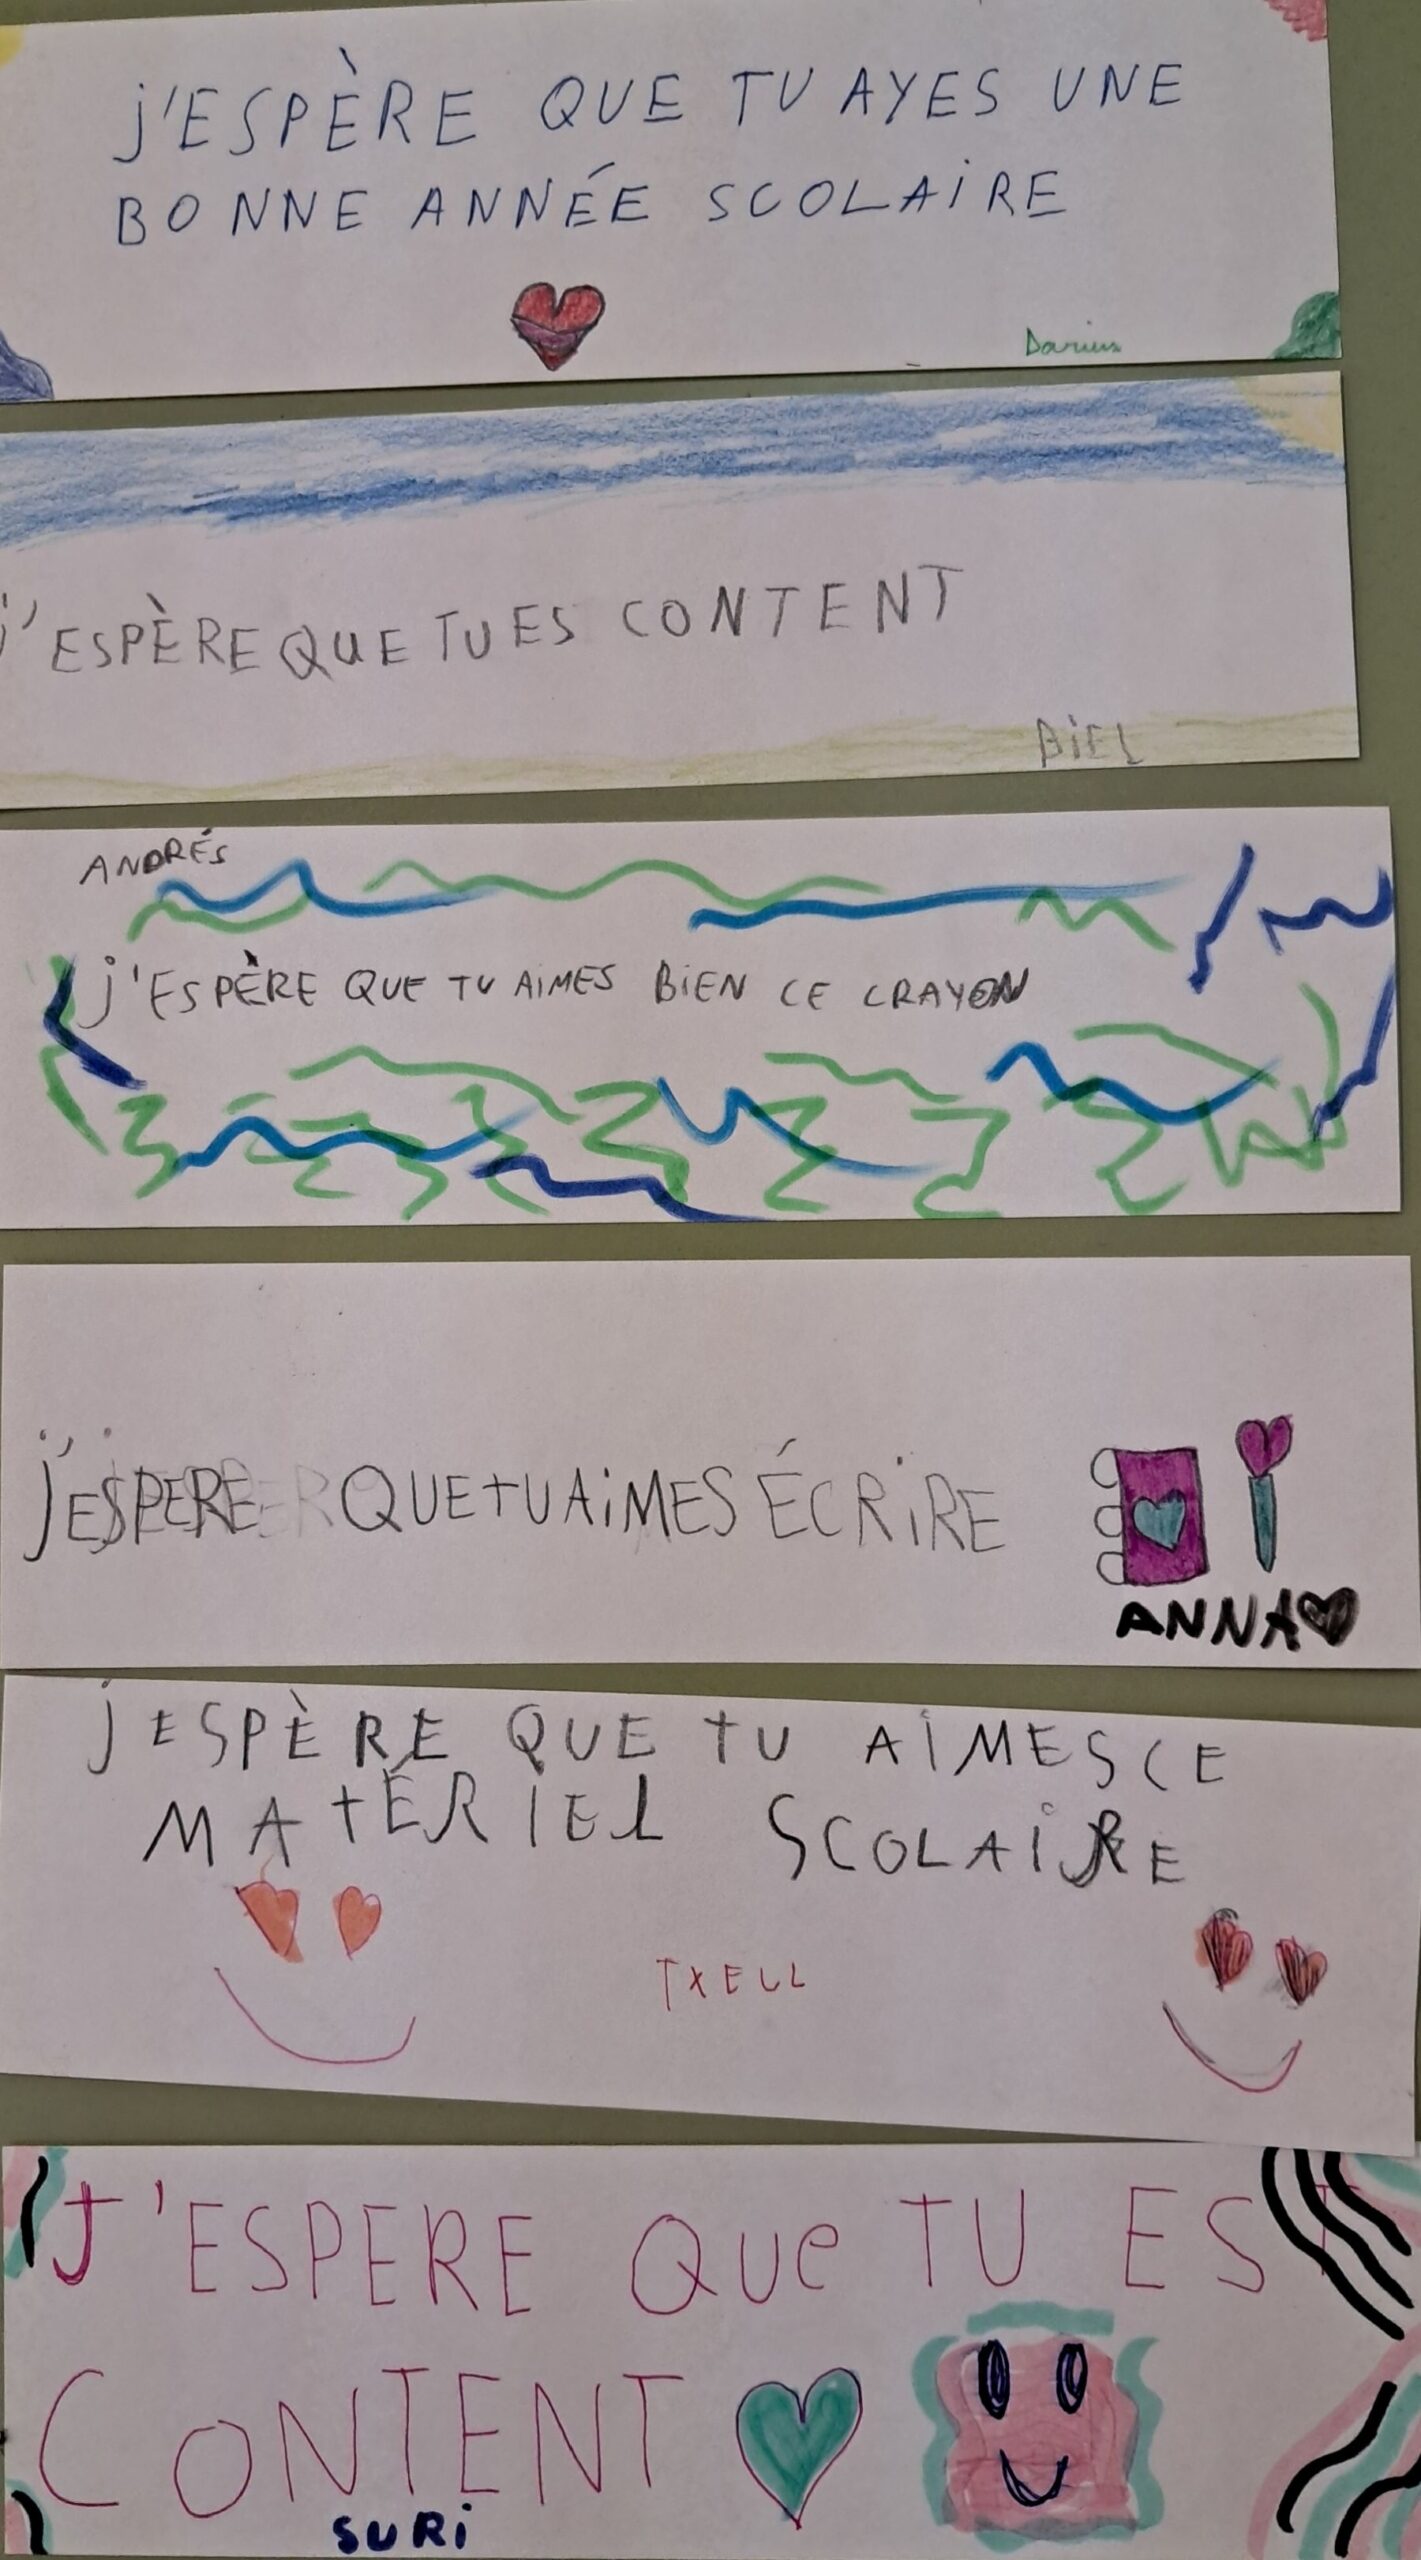 j'ESPÈRE QUE TU AYES UNE
BONNE ANNÉE SCOLAiRE
Darius
j'ESPÈRE QUE TU ES CONTENT
BiEL
ANDRÉS
j'ESPÈRE QUE TU AiMES BiEN CE CRAYON
j'ESPERE QUE TU AiMES ÉCRiRE
ANNA
jESPÈRE QUE TU AiMES CE
MATÉRIEL SCOLAiRE
TXELL
J'ESPERE Que TU EST
CONTENT
SURi